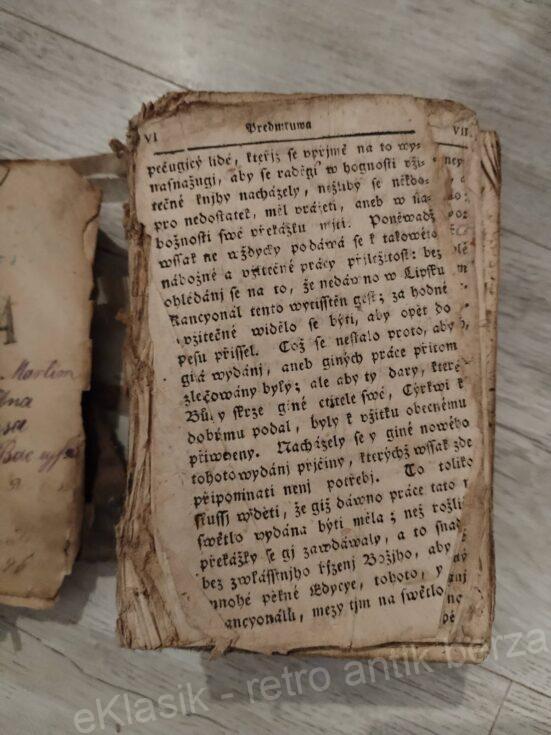 A
Martin
VI Predmluwa VII
pečugjcý lidé, kteřjž se vpřjmě na to wy-
nasnažugj, aby se raděgi w hognosti vži-
tečné knjhy nacházely, nežliby se někdo-
pro nedostatek, měl vráceti, aneb w ná-
božnosti swé překážku mjti. Poněwadž
wssak ne wždycky podáwá se k takowéto
nábožné a vžitečné prácy přjležitost: bez
ohlédánj se na to, že nedáwno w Lipsku
Kancyonál tento wytisstěn gest; za hodné
vžitečné widělo se býti, aby opět do
pesu přissel. Což se nestalo proto, aby
giná wydánj, aneb giných práce přitom
zlečowány byly; ale aby ty dary, které
Bůh skrze giné ctitele swé, Cýrkwi k
dobrému podal, byly k vžitku obecnému
přiwedeny. Nacházely se y giné nowého
tohoto wydánj přjčiny, kterýchž wssak zde
připomjnati nenj potřebj. To toliko
slussj wěděti, že giž dáwno práce tato
swětlo wydána býti měla; než rozli
překážky se gj zawdáwaly, a to snad
bez zwlásstnjho řjzenj Božjho, aby
mnohé pěkné Edycye, tohoto, y
ancyonálu, mezy tjm na swětlo